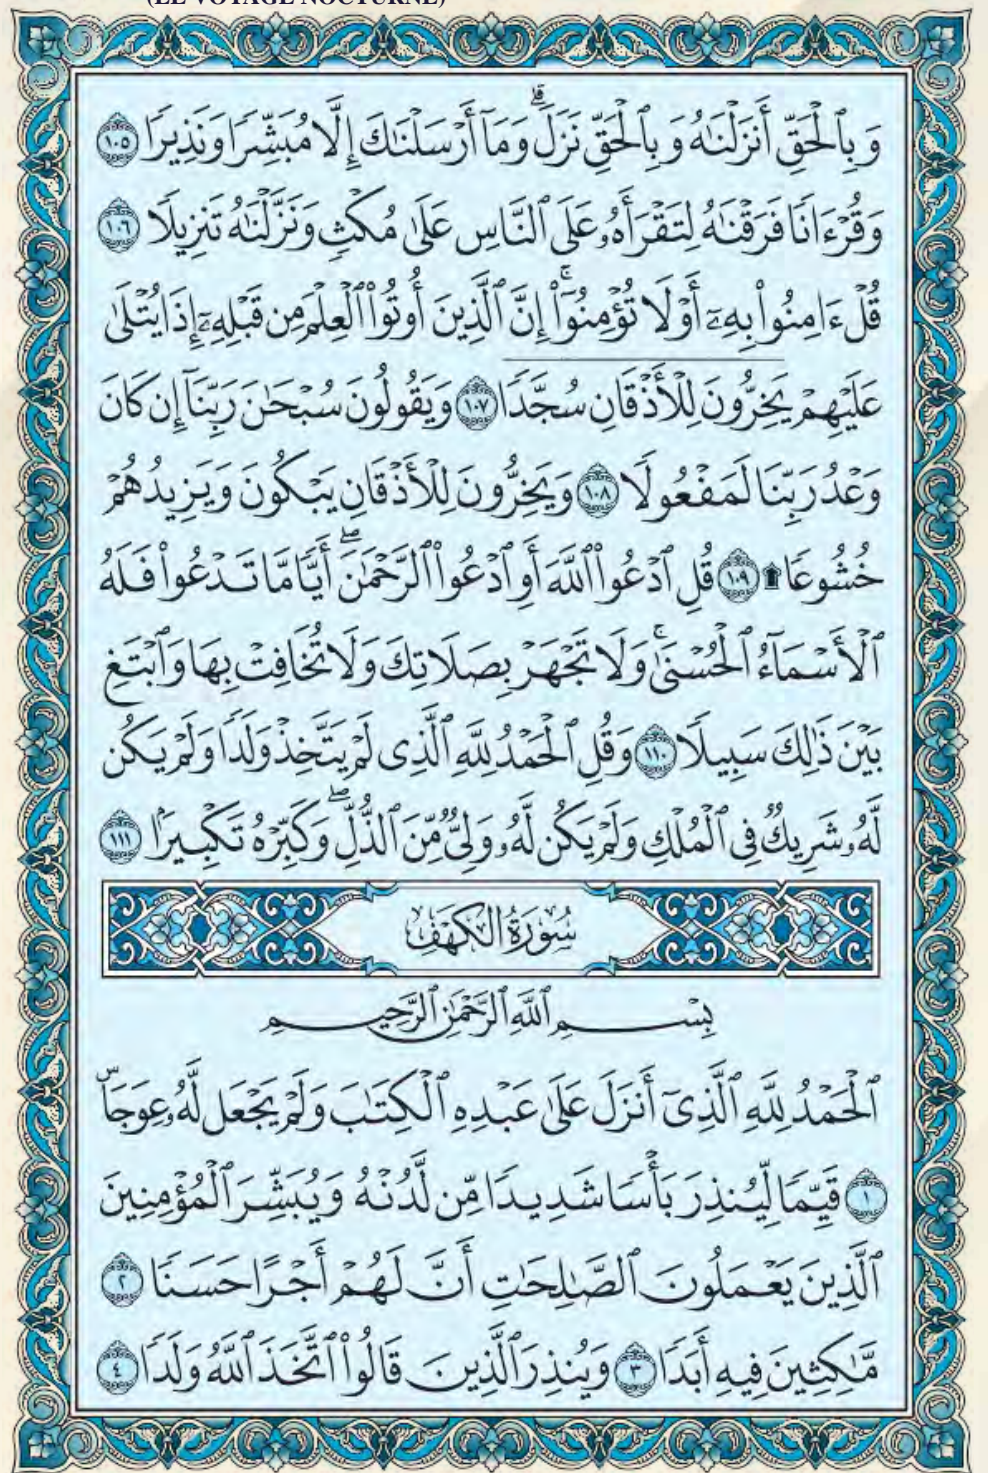 (LE VOYAGE NOCTURNE)
وَبِٱلْحَقِّ أَنزَلْنَٰهُ وَبِٱلْحَقِّ نَزَلَ ۗ وَمَآ أَرْسَلْنَٰكَ إِلَّا مُبَشِّرًا وَنَذِيرًا ١٠٥
وَقُرْءَانًا فَرَقْنَٰهُ لِتَقْرَأَهُۥ عَلَى ٱلنَّاسِ عَلَىٰ مُكْثٍ وَنَزَّلْنَٰهُ تَنزِيلًا ١٠٦
قُلْ ءَامِنُوا۟ بِهِۦٓ أَوْ لَا تُؤْمِنُوٓا۟ ۚ إِنَّ ٱلَّذِينَ أُوتُوا۟ ٱلْعِلْمَ مِن قَبْلِهِۦٓ إِذَا يُتْلَىٰ
عَلَيْهِمْ يَخِرُّونَ لِلْأَذْقَانِ سُجَّدًا ١٠٧ وَيَقُولُونَ سُبْحَٰنَ رَبِّنَآ إِن كَانَ
وَعْدُ رَبِّنَا لَمَفْعُولًا ١٠٨ وَيَخِرُّونَ لِلْأَذْقَانِ يَبْكُونَ وَيَزِيدُهُمْ
خُشُوعًا ۩ ١٠٩ قُلِ ٱدْعُوا۟ ٱللَّهَ أَوِ ٱدْعُوا۟ ٱلرَّحْمَٰنَ ۖ أَيًّا مَّا تَدْعُوا۟ فَلَهُ
ٱلْأَسْمَآءُ ٱلْحُسْنَىٰ ۚ وَلَا تَجْهَرْ بِصَلَاتِكَ وَلَا تُخَافِتْ بِهَا وَٱبْتَغِ
بَيْنَ ذَٰلِكَ سَبِيلًا ١١٠ وَقُلِ ٱلْحَمْدُ لِلَّهِ ٱلَّذِى لَمْ يَتَّخِذْ وَلَدًا وَلَمْ يَكُن
لَّهُۥ شَرِيكٌ فِى ٱلْمُلْكِ وَلَمْ يَكُن لَّهُۥ وَلِىٌّ مِّنَ ٱلذُّلِّ ۖ وَكَبِّرْهُ تَكْبِيرًۢا ١١١
سُورَةُ الكَهْفِ
بِسْمِ ٱللَّهِ ٱلرَّحْمَٰنِ ٱلرَّحِيمِ
ٱلْحَمْدُ لِلَّهِ ٱلَّذِىٓ أَنزَلَ عَلَىٰ عَبْدِهِ ٱلْكِتَٰبَ وَلَمْ يَجْعَل لَّهُۥ عِوَجَاۜ
١ قَيِّمًا لِّيُنذِرَ بَأْسًا شَدِيدًا مِّن لَّدُنْهُ وَيُبَشِّرَ ٱلْمُؤْمِنِينَ
ٱلَّذِينَ يَعْمَلُونَ ٱلصَّٰلِحَٰتِ أَنَّ لَهُمْ أَجْرًا حَسَنًا ٢
مَّٰكِثِينَ فِيهِ أَبَدًا ٣ وَيُنذِرَ ٱلَّذِينَ قَالُوا۟ ٱتَّخَذَ ٱللَّهُ وَلَدًا ٤